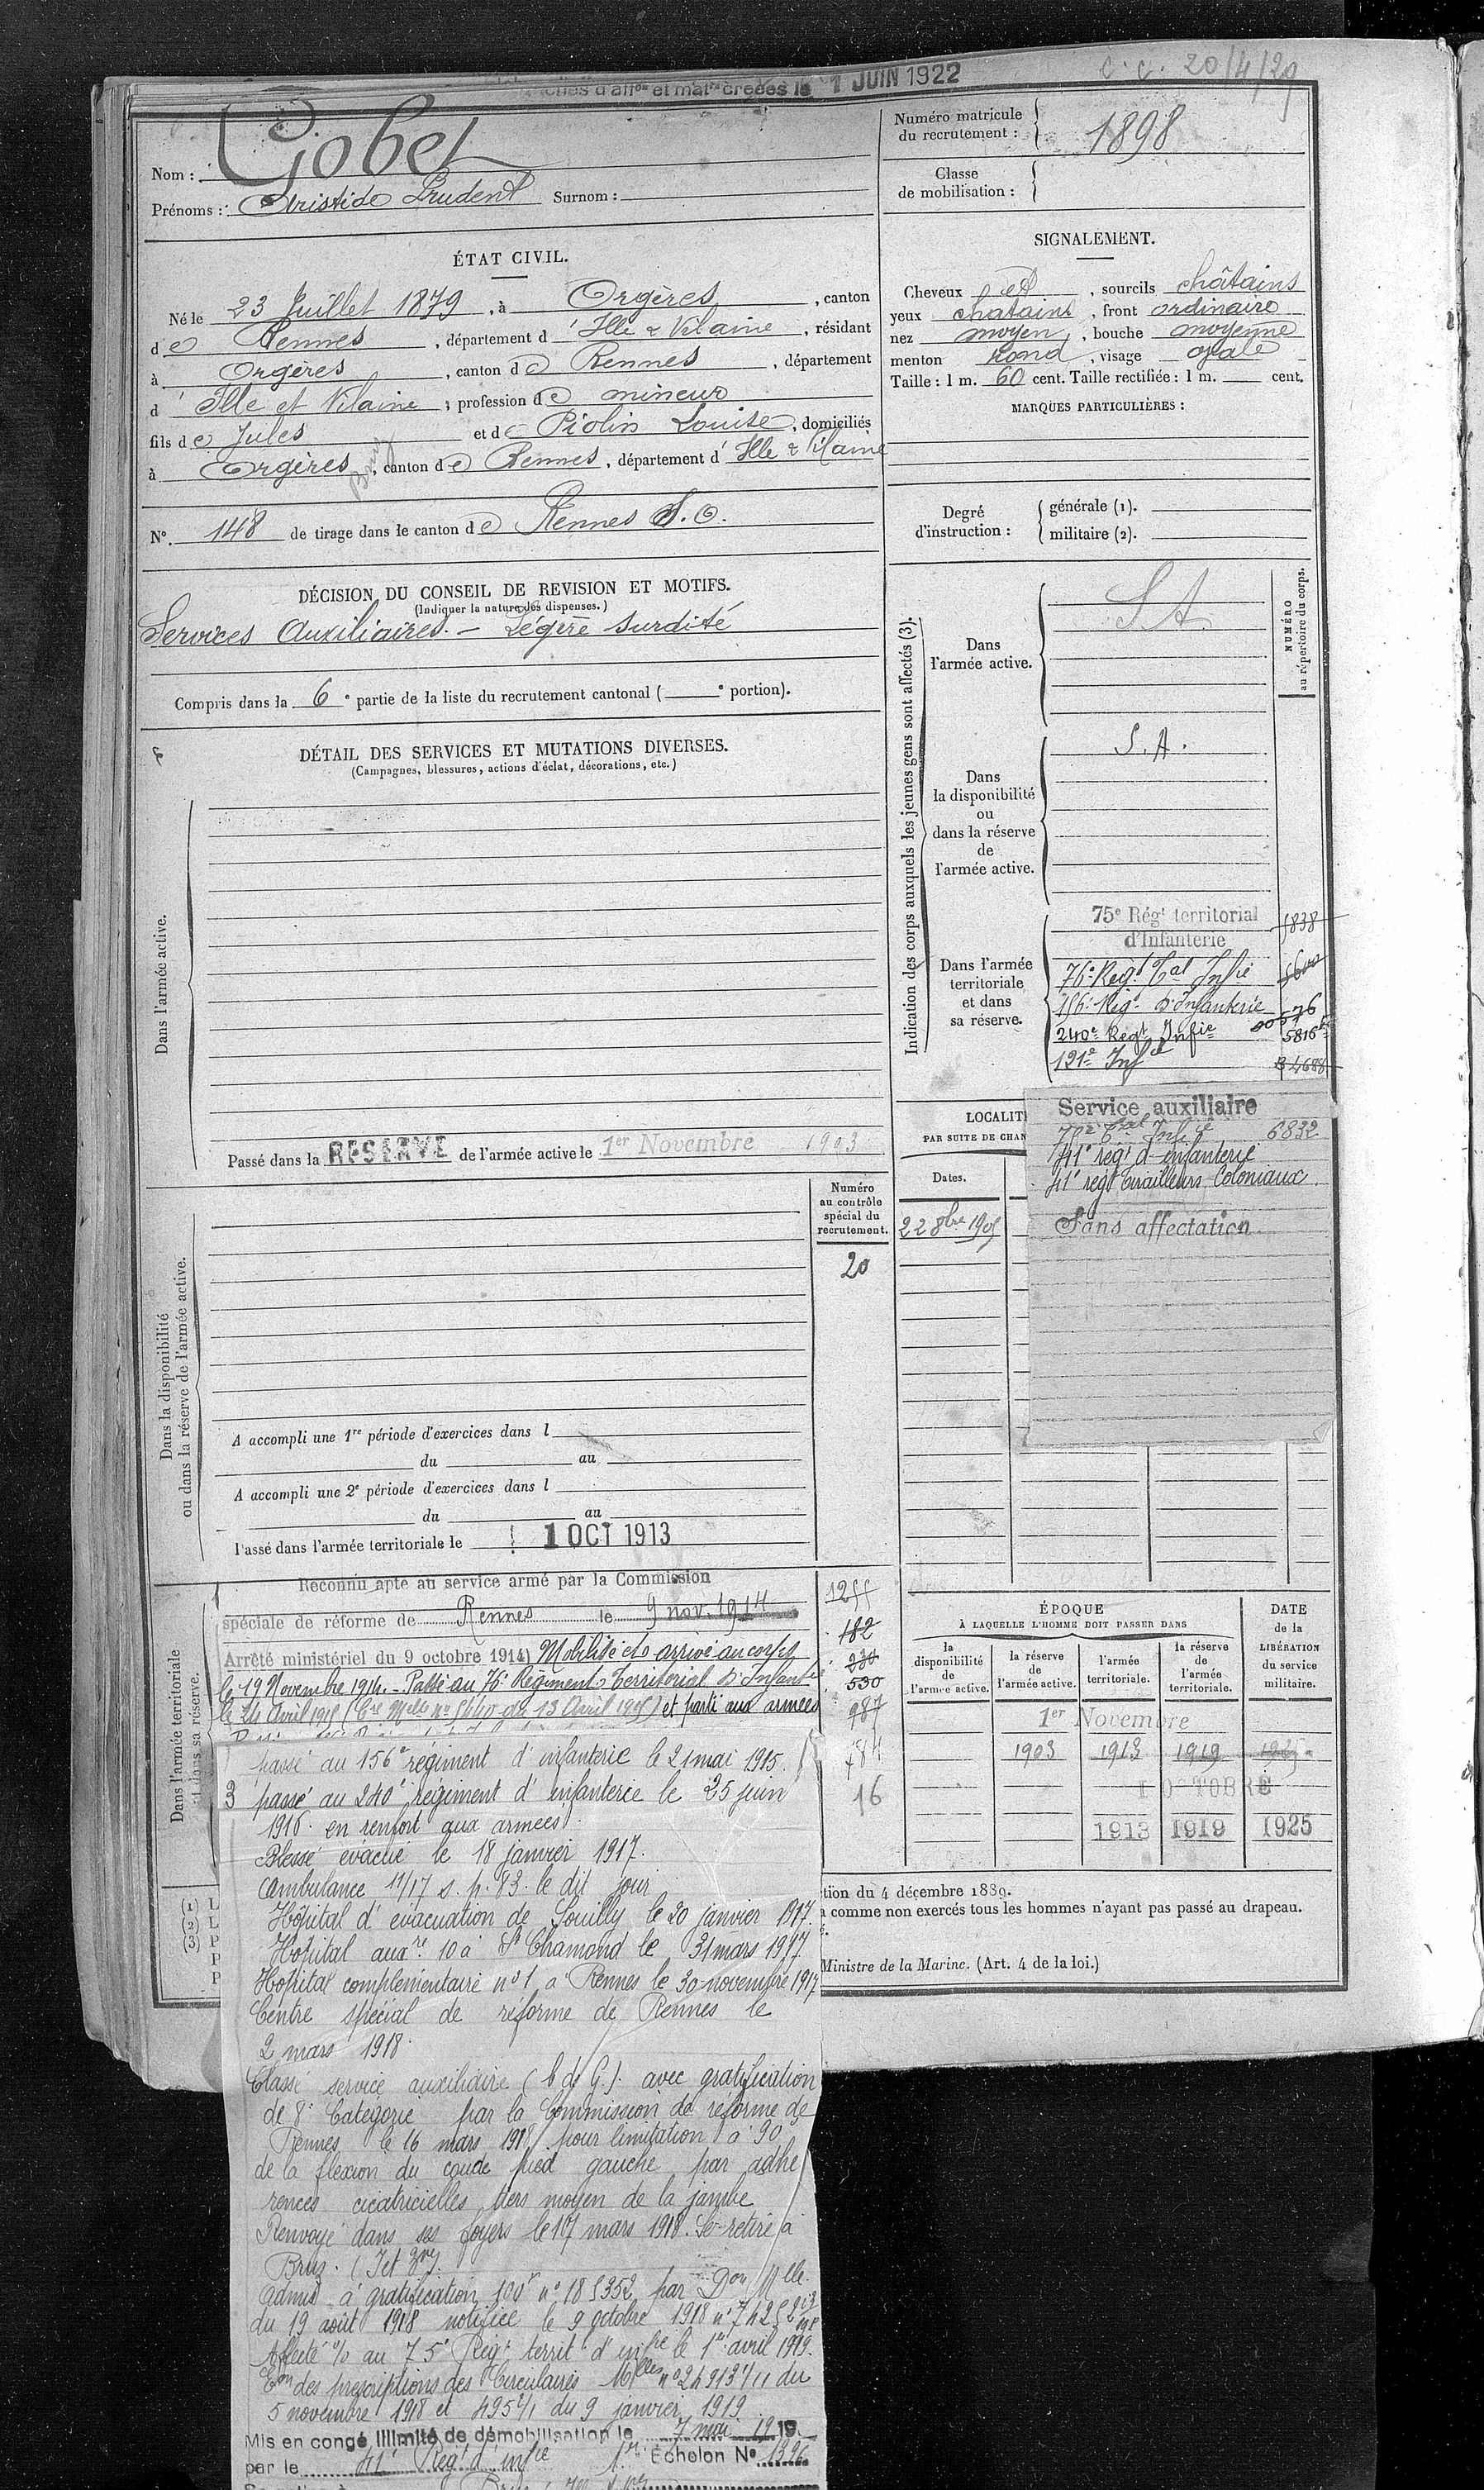 et matles créées le 1 JUIN 1922
c. c. 20/4/29
Nom : Gobet
Prénoms : Aristide Prudent Surnom :
Numéro matricule
du recrutement : 1898
Classe
de mobilisation :
ÉTAT CIVIL.
Né le 23 Juillet 1879, à Orgères, canton
de Rennes, département d' Ille & Vilaine, résidant
à Orgères, canton de Rennes, département
d' Ille et Vilaine, profession de mineur
fils de Jules et de Piolin Louise, domiciliés
Bruz
à Orgères, canton de Rennes, département d' Ille & Vilaine
N° 148 de tirage dans le canton de Rennes S.O.
SIGNALEMENT.
Cheveux et, sourcils châtains
yeux chatains, front ordinaire
nez moyen, bouche moyenne
menton rond, visage ovale
Taille : 1 m. 60 cent. Taille rectifiée : 1 m. cent.
MARQUES PARTICULIÈRES :
Degré
d'instruction :
générale (1).
militaire (2).
DÉCISION DU CONSEIL DE REVISION ET MOTIFS.
(Indiquer la nature des dispenses.)
Services Auxiliaires. - Légère surdité
Compris dans la 6e partie de la liste du recrutement cantonal ( e portion).
DÉTAIL DES SERVICES ET MUTATIONS DIVERSES.
(Campagnes, blessures, actions d'éclat, décorations, etc.)
Dans l'armée active.
Passé dans la RÉSERVE de l'armée active le 1er Novembre 1903
Indication des corps auxquels les jeunes gens sont affectés (3).
NUMÉRO
au répertoire du corps.
Dans
l'armée active.
S A
Dans
la disponibilité
ou
dans la réserve
de
l'armée active.
S. A.
Dans l'armée
territoriale
et dans
sa réserve.
75e Régt territorial
d'Infanterie
1838
76e Régt Tal Infie
156e Régt d'Infanterie
240e Régt Infie
5816
121e Infie
Service auxiliaire
75e Tal Infie 6832
41e régt d'infanterie
41e régt tirailleurs Coloniaux.
Sans affectation.
LOCALIT
PAR SUITE DE CHAN
Dates.
22 8bre 1905
Numéro
au contrôle
spécial du
recrutement.
20
Dans la disponibilité
ou dans la réserve de l'armée active.
A accompli une 1re période d'exercices dans l
du au
A accompli une 2e période d'exercices dans l
du au
Passé dans l'armée territoriale le 1 OCT 1913
Dans l'armée territoriale
et dans sa réserve.
Reconnu apte au service armé par la Commission
spéciale de réforme de Rennes le 9 nov. 1914
Arrêté ministériel du 9 octobre 1914) Mobilisé et arrivé au corps
le 19 Novembre 1914. - Passé au 76e Régiment Territorial d'Infantie
le 24 Avril 1915 du 13 Avril 1915) et parti aux armées
1255
182
230
530
987
784
16
passé au 156e régiment d'infanterie le 21 mai 1915.
3 passé au 240e régiment d'infanterie le 25 juin
1916. en renfort aux armées.
Blessé évacué le 18 janvier 1917.
Ambulance 11/17 s. p. 83. le dit jour
Hôpital d'évacuation de Souilly le 20 janvier 1917.
Hopital auxre 10 à St Chamond le 31 mars 1917
Hopital complémentaire n° 1 à Rennes le 30 novembre 1917
Centre spécial de réforme de Rennes le
2 mars 1918.
Classé service auxiliaire (b d G). avec gratification
de 8e Catégorie par la Commission de réforme de
Rennes le 16 mars 1918 pour limitation à 90
de la flexion du coude pied gauche par adhé
rences cicatricielles tiers moyen de la jambe
Renvoyé dans ses foyers le 17 mars 1918. Se retire à
Bruz. (I et V)
Admis à gratification n° 185352 par Don Mlle
du 19 août 1918 notifiée le 9 octobre 1918
Affecté % au 75e Régt territl d'infie le 1er avril 1919.
Eon des prescriptions des Circulaires Mlles n° 24913 1/11 du
5 novembre 1918 et 495 2/1 du 9 janvier 1919
Mis en congé illimité de démobilisation le 7 mai 1919.
par le 41e Régt d'infie 1er Échelon N° 1396
ÉPOQUE
À LAQUELLE L'HOMME DOIT PASSER DANS
DATE
de la
LIBÉRATION
du service
militaire.
la
disponibilité
de
l'armée active.
la réserve
de
l'armée active.
l'armée
territoriale.
la réserve
de
l'armée
territoriale.
1er Novembre
1903 1913 1919 1925
1 OCTOBRE
1913 1919 1925
(1) L
(2) L
(3) P
P
P
tion du 4 décembre 1889.
a comme non exercés tous les hommes n'ayant pas passé au drapeau.
é.
Ministre de la Marine. (Art. 4 de la loi.)